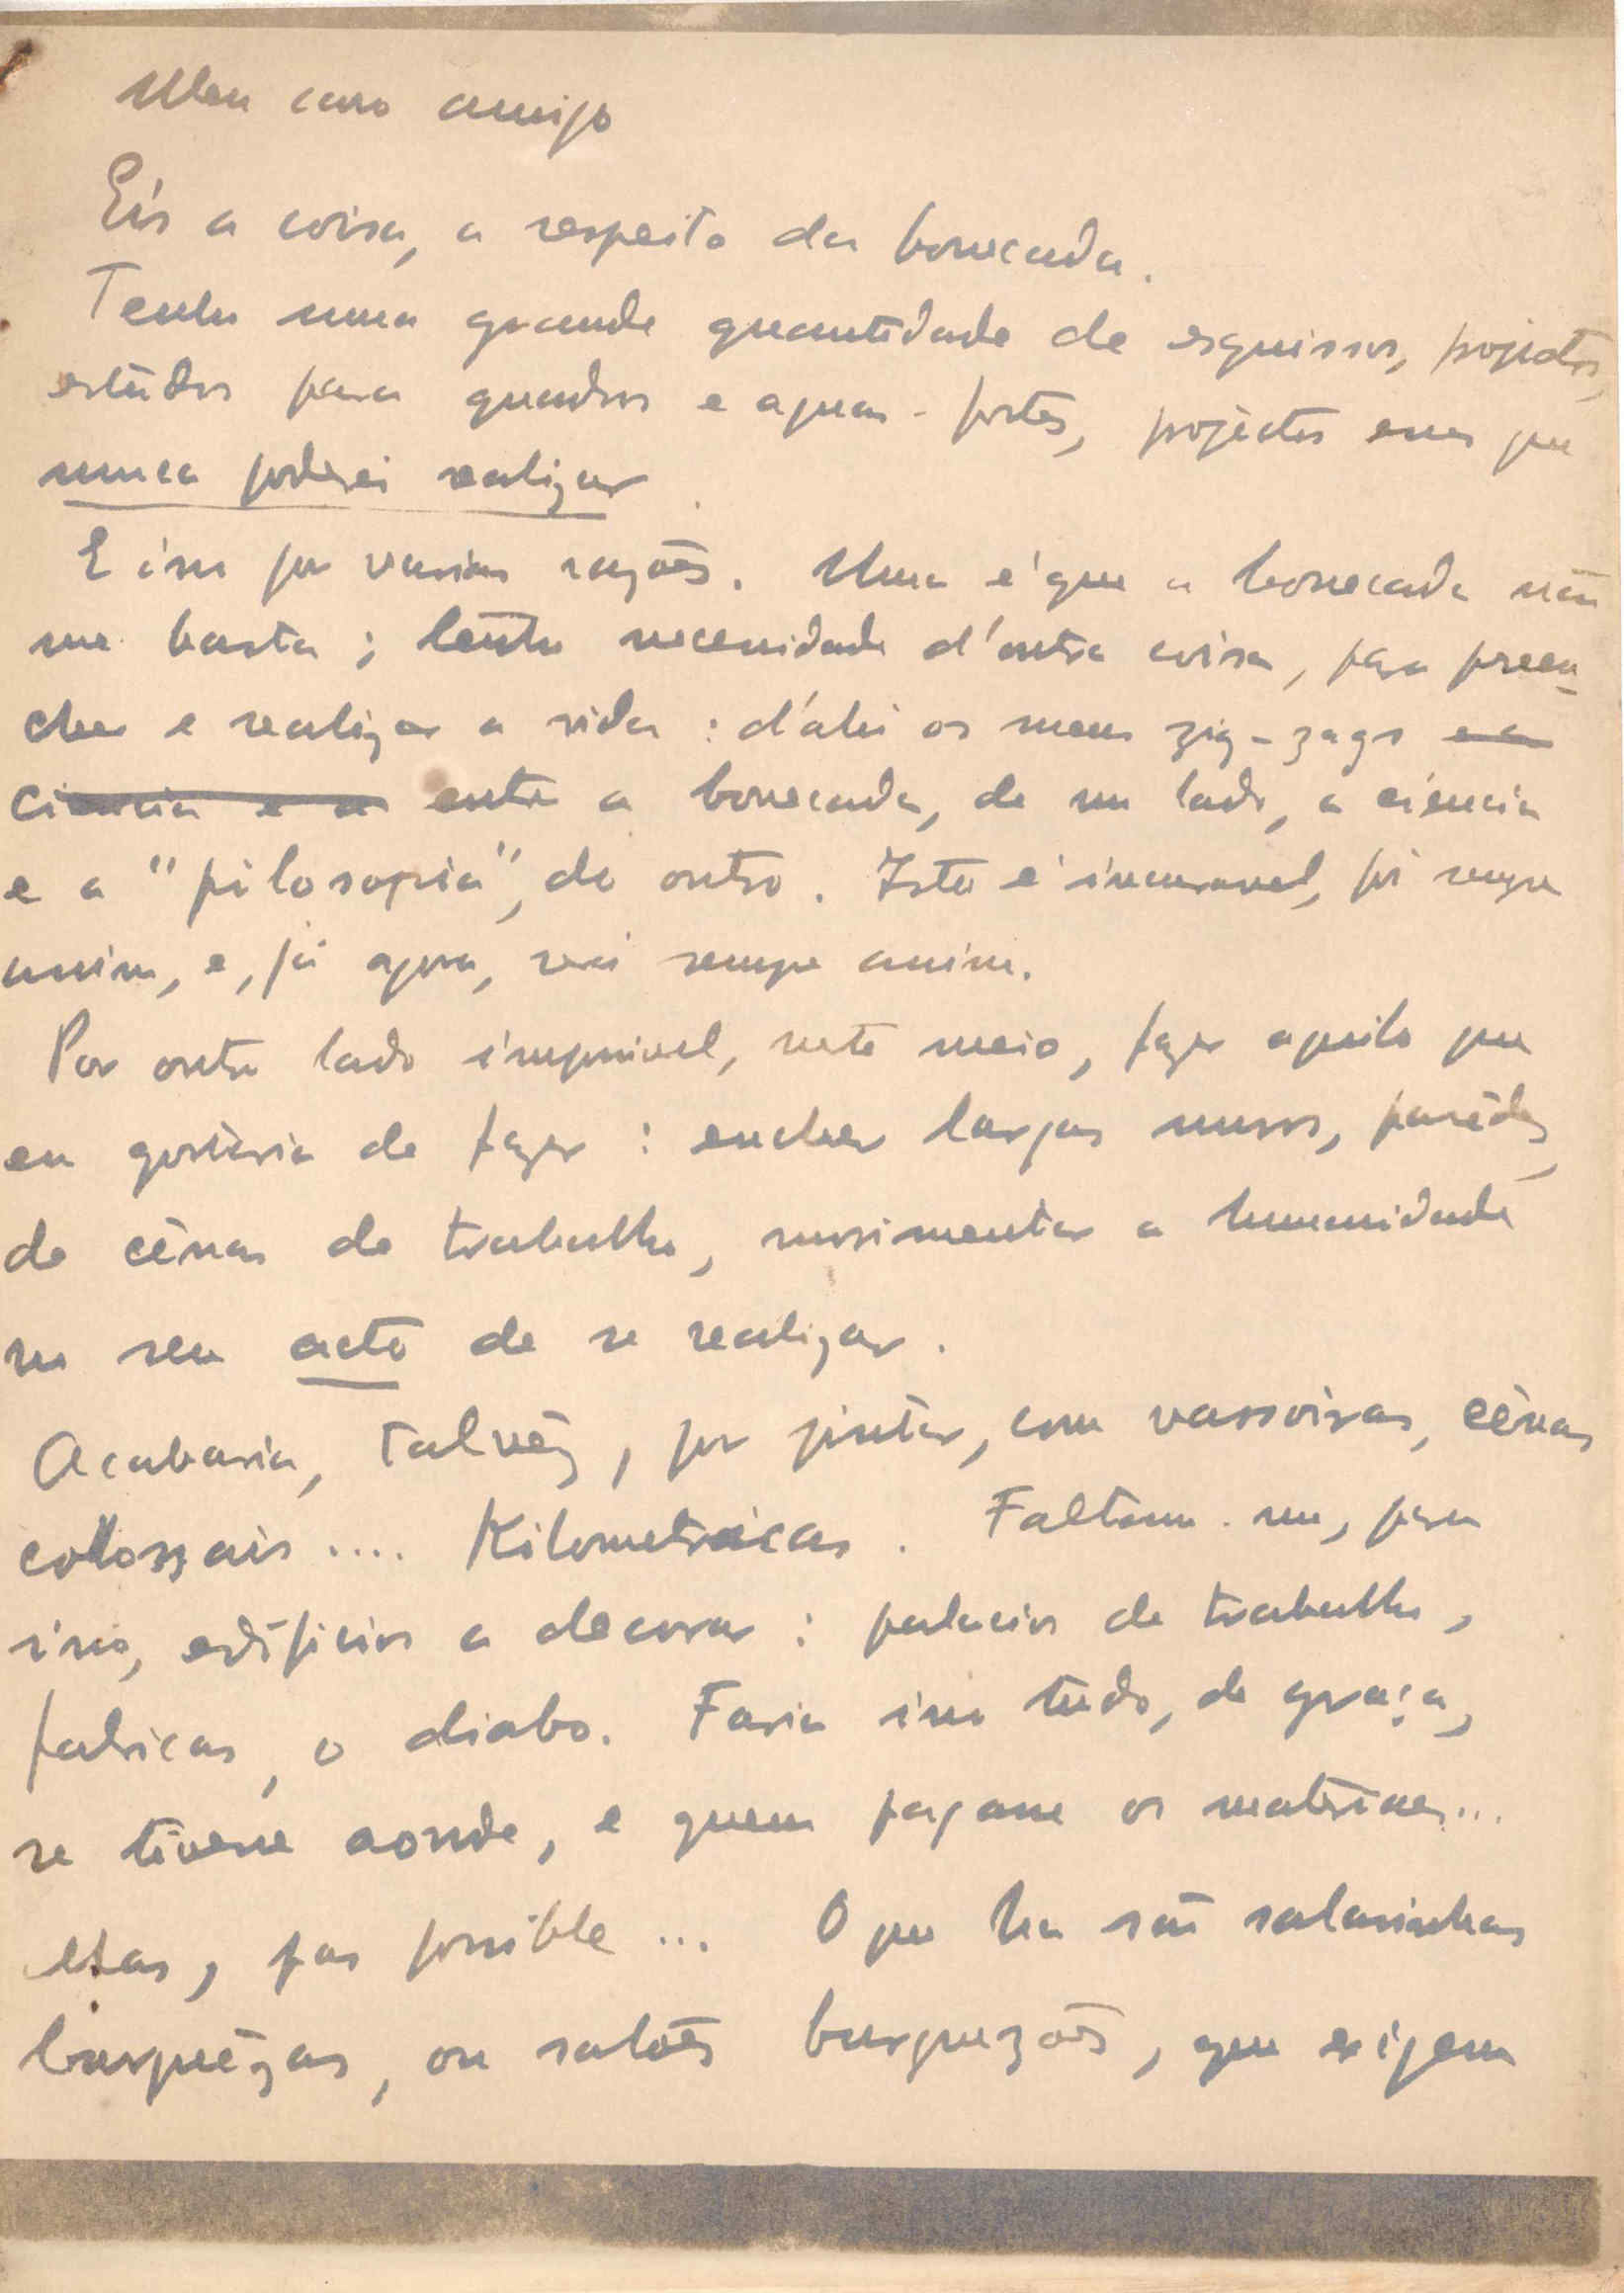 Meu caro amigo
Eis a coisa, a respeito da bonecada.
Tenho uma grande quantidade de esquissos, projectos,
estudos para quadros e aguas-fortes, projectos esses que
nunca poderei realizar.
E isso por varias razões. Uma é que a bonecada não
me basta; tenho necessidade d'outra coisa, para preen-
cher e realizar a vida: d'ahi os meus zig-zags e a
ciencia e a entre a bonecada, de um lado, a ciência
e a "filosofia", do outro. Isto é incuravel, foi sempre
assim, e, já agora, será sempre assim.
Por outro lado impossivel, neste meio, fazer aquilo que
eu gostaria de fazer: encher largos muros, parêdes,
de cênas de trabalho, movimentar a humanidade
no seu acto de se realizar.
Acabaria, talvêz, por pintar, com vassoiras, cênas
colossais.... Kilometricas. Faltam-me, para
isso, edificios a decorar: palacios de trabalho,
fabricas, o diabo. Faria isso tudo, de graça,
se tivesse aonde, e quem pagasse os materiaes...
Mas, pas possible... O que ha são salasinhas
burguêzas, ou salões burguezões, que exigem